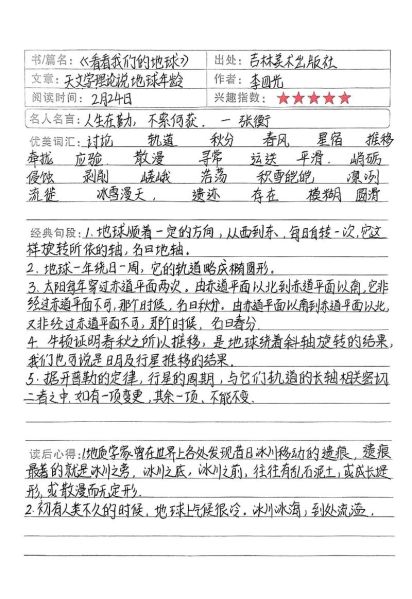 书/篇名:《看看我们的地球》 出处:吉林美术出版社
文章:天文学理论说地球年龄 作者:李四光
阅读时间:2月24日 兴趣指数:★★★★★
名人名言:人生在勤,不索何获。一 张衡
优美词汇:讨论 轨道 秋分 春风 星宿 推移
牵拢 应验 散漫 寻常 运送 平滑. 峭砺
侵蚀 剥削 嵯峨 浩荡 积雪皑皑 澳洲
流徙 冰雪漫天, 遗迹 存在 模糊 圆滑
经典句段:1.地球顺着一定的方向,从西到东,每日自转一次,它这
样旋转所依的轴,名曰地轴。
2.地球一年绕日一周,它的轨道略庆椭圆形。
3.太阳每年穿过赤道平面两次。由赤道平面以北到赤道平面以南,它非
经过赤道平面不可,那个时候,名曰秋分。由赤道平面以南到赤道平面以北,
又非经过赤道平面不可,那个时候,名曰春分.
4.牛顿证明春秋之所以推移,是地球绕着斜轴旋转的结果,
我们也可说是日月及行星推移的结果。
5.据开普勒的定律,行星的周期,与它们轨道的长轴相关密切
二者之中,如有一项变更,其余一项、不能不变.
读后心得:1地质学家曾在世界上各处发现昔日冰川移动的遗痕,遗痕
最著的就是冰川之旁,冰川之底,冰川之前,往往有乱石泥土,或成长堤
形,或散漫而无定形.
2.初有人类不久的时候,地球上气候很冷.冰川冰海,到处流溢.